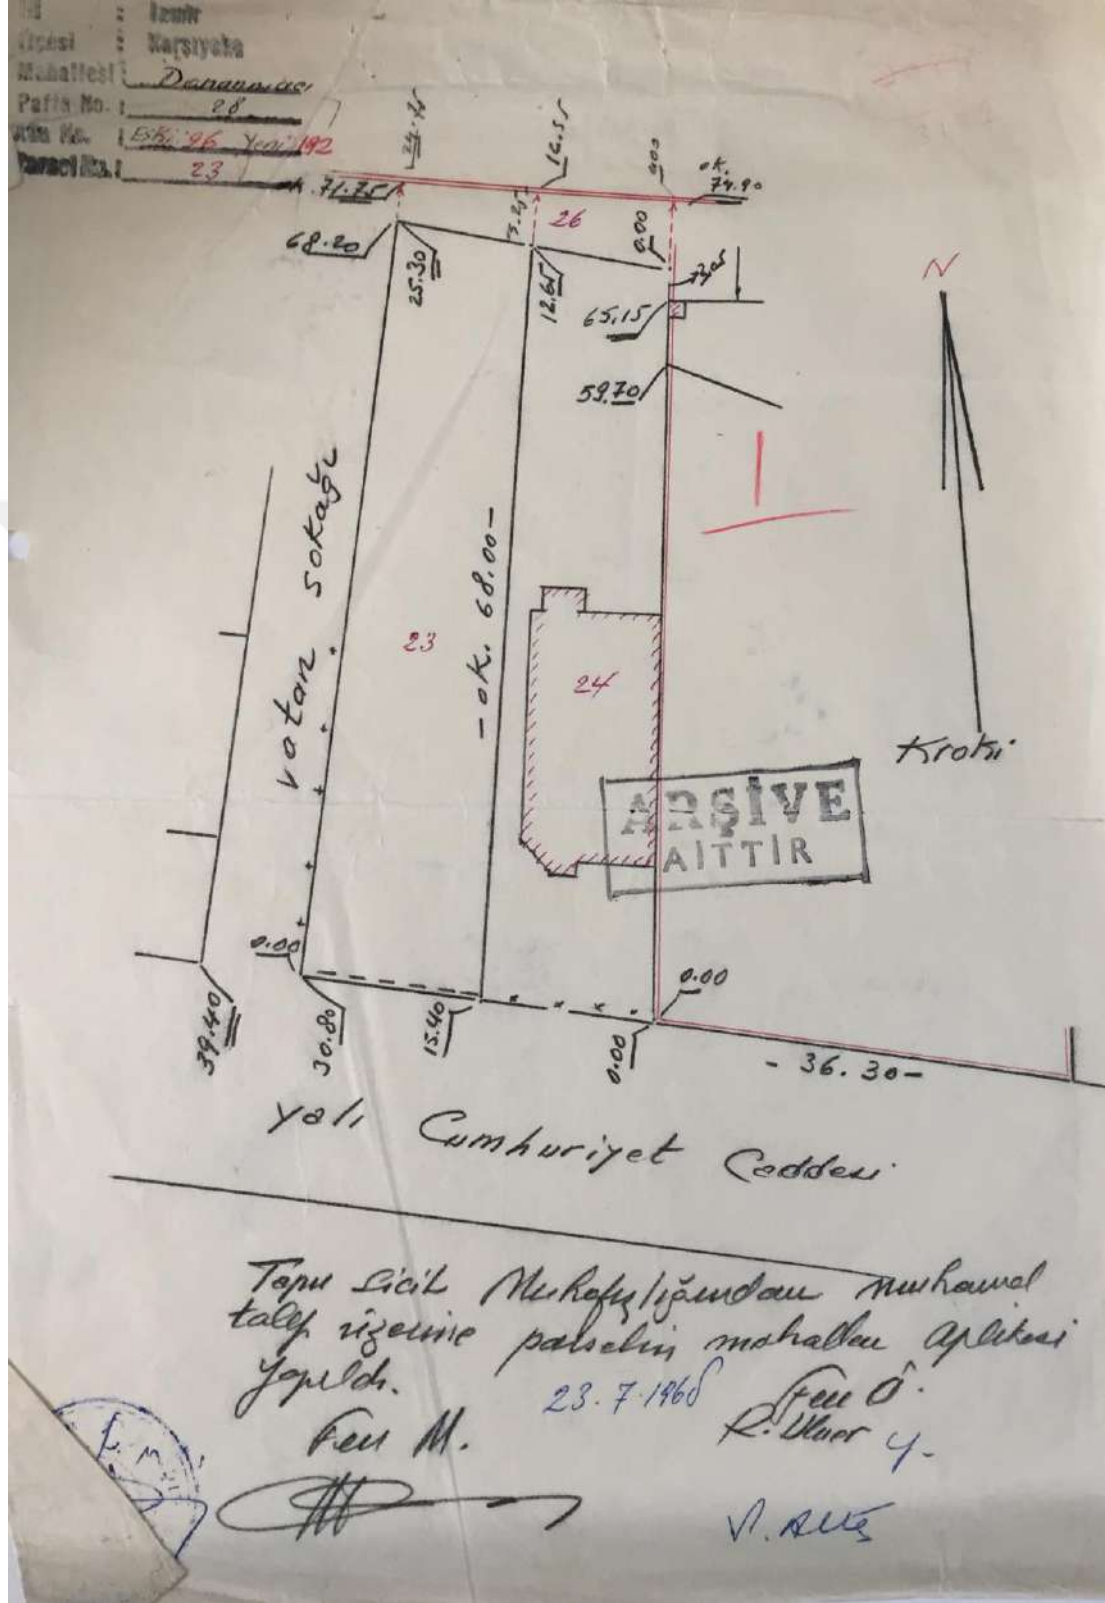 İli : İzmir
İlçesi : Karşıyaka
Mahallesi : Donanmacı
Pafta No. : 28
Ada No. : Eski: 96 Yeni: 192
Parsel No. : 23
24.75
16.55
0.00
ok. 74.90
ok. 71.75
5.25
26
0.00
68.20
25.30
12.65
65.15
59.70
N
I
vatan sokağı
- ok. 68.00 -
23
24
Kroki
ARŞİVE
AİTTİR
0.00
0.00
39.40
30.80
15.40
0.00
- 36.30 -
Yalı Cumhuriyet Caddesi
Tapu Sicil Muhafızlığından
talep üzerine parselin mahallen aplikesi
yapıldı.
23.7.196
Fen M.
Fen
R.